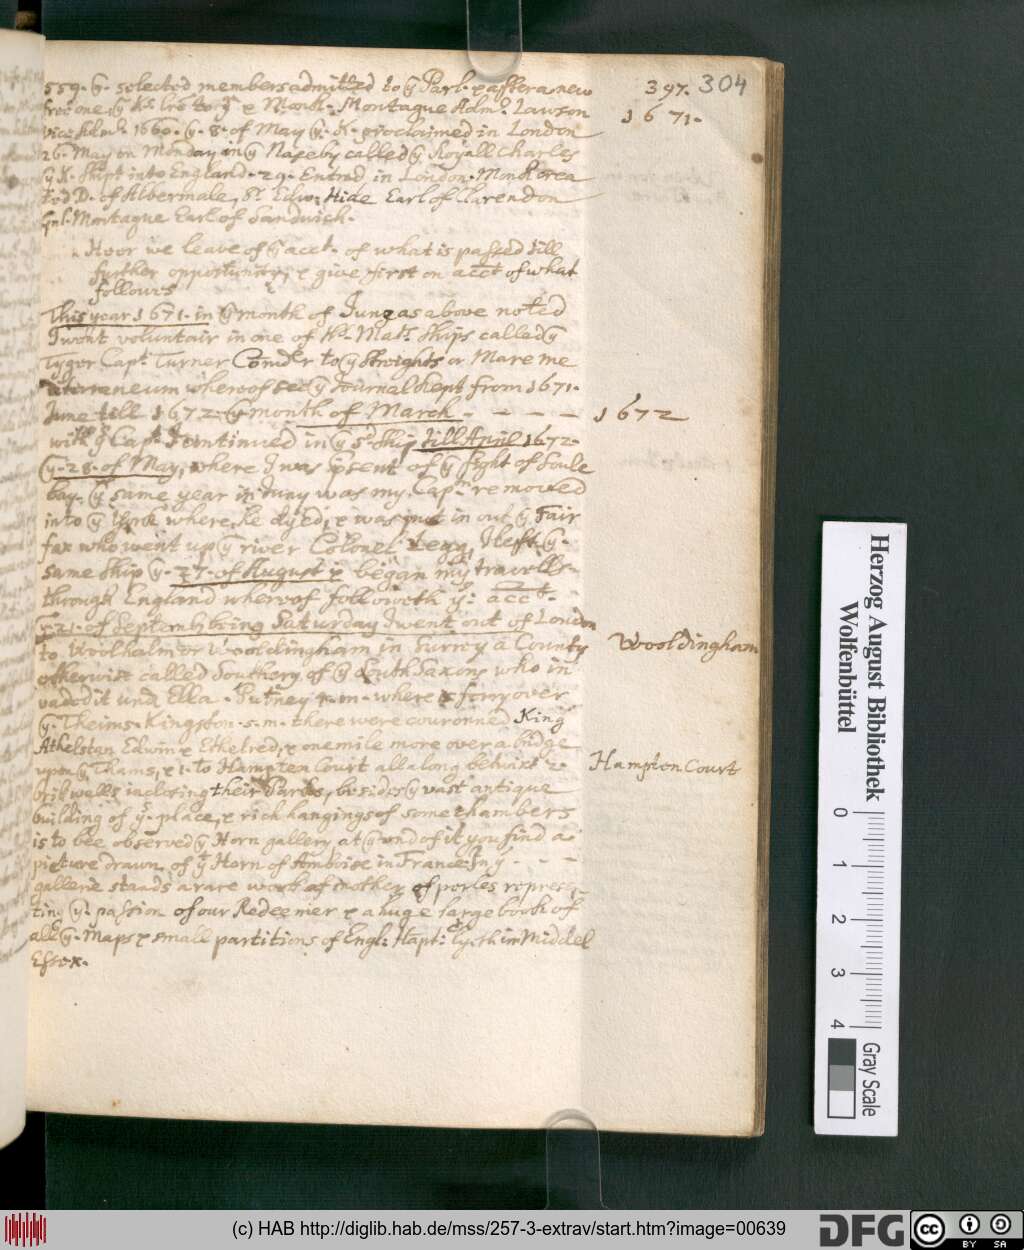 397. 304
1671.
559. ÿ. selected members admitted to ÿ Parl. & after a new
free one, ÿ Ks lrs to ÿ & Monk. Montague Adm. Lawson
vice Adm. 1660. ÿ. 8. of May ÿ. K. proclaimed in London
May on Monday in ÿ Naseby called ÿ Royall Charles
ÿ K. shipt into England. 29. Entred in London. Monk crea
ted D. of Albermale, Sr Edw. Hide Earl of Clarendon
Montague Earl of Sandwich.
Heer we leave of ÿ acct. of what is passed till
further opportunity, & give first on acct of what
follows
This year 1671. in ÿ month of June as above noted
I went voluntair in one of Ks. Mats ships called ÿ
Tyger Capt. Turner Comder to ÿ Streights or Mare me
diterraneum whereof see ÿ Journal kept from 1671.
June till 1672 ÿ month of March - - - -
1672
with ÿ Capt. I continued in ÿ sd ship till April 1672.
ÿ. 28. of May, where I was psent of ÿ fight of Soule
bay. ÿ same year in Juny was my Capn removed
into ÿ York where he dyed, & I was put in out ÿ Fair
fax who went up ÿ river Colonel Legg, I left ÿ.
same ship ÿ. 27. of August & began my travells
through England whereof followeth ÿ: acct.
ÿ 21. of Septemb being Saturday I went out of London
to Woolhalm or Wooldingham in Surrey a County
Wooldingham
otherwise called Southery of ÿ South Saxons who in
vaded it und Ella. Putney 4. m. where is ferry over
ÿ. Theims. Kingston. 5. m. there were couronned King
Athelstan Edwin & Ethelred, & one mile more over a bridge
upon ÿ Thams, & 1. to Hampten Court all along betwixt 2.
Hampten Court
brik wells inclosing their Parks, besides ÿ vast antique
building of ÿ. place, & rich hangings of some chambers
is to bee observed ÿ Horn gallery, at ÿ end of it you find a
picture drawn of ÿ Horn of Amboise in France. In ÿ - - -
gallerie stands a rare work of mother of perles represen-
ting ÿ. passion of our Redeemer & a huge large book of
all ÿ. Maps & small partitions of Engl: Hapt: Ct lyeth im Middel
Essex.
Herzog August Bibliothek
Wolfenbüttel
0 1 2 3 4
Gray Scale
(c) HAB http://diglib.hab.de/mss/257-3-extrav/start.htm?image=00639
DFG
cc BY SA